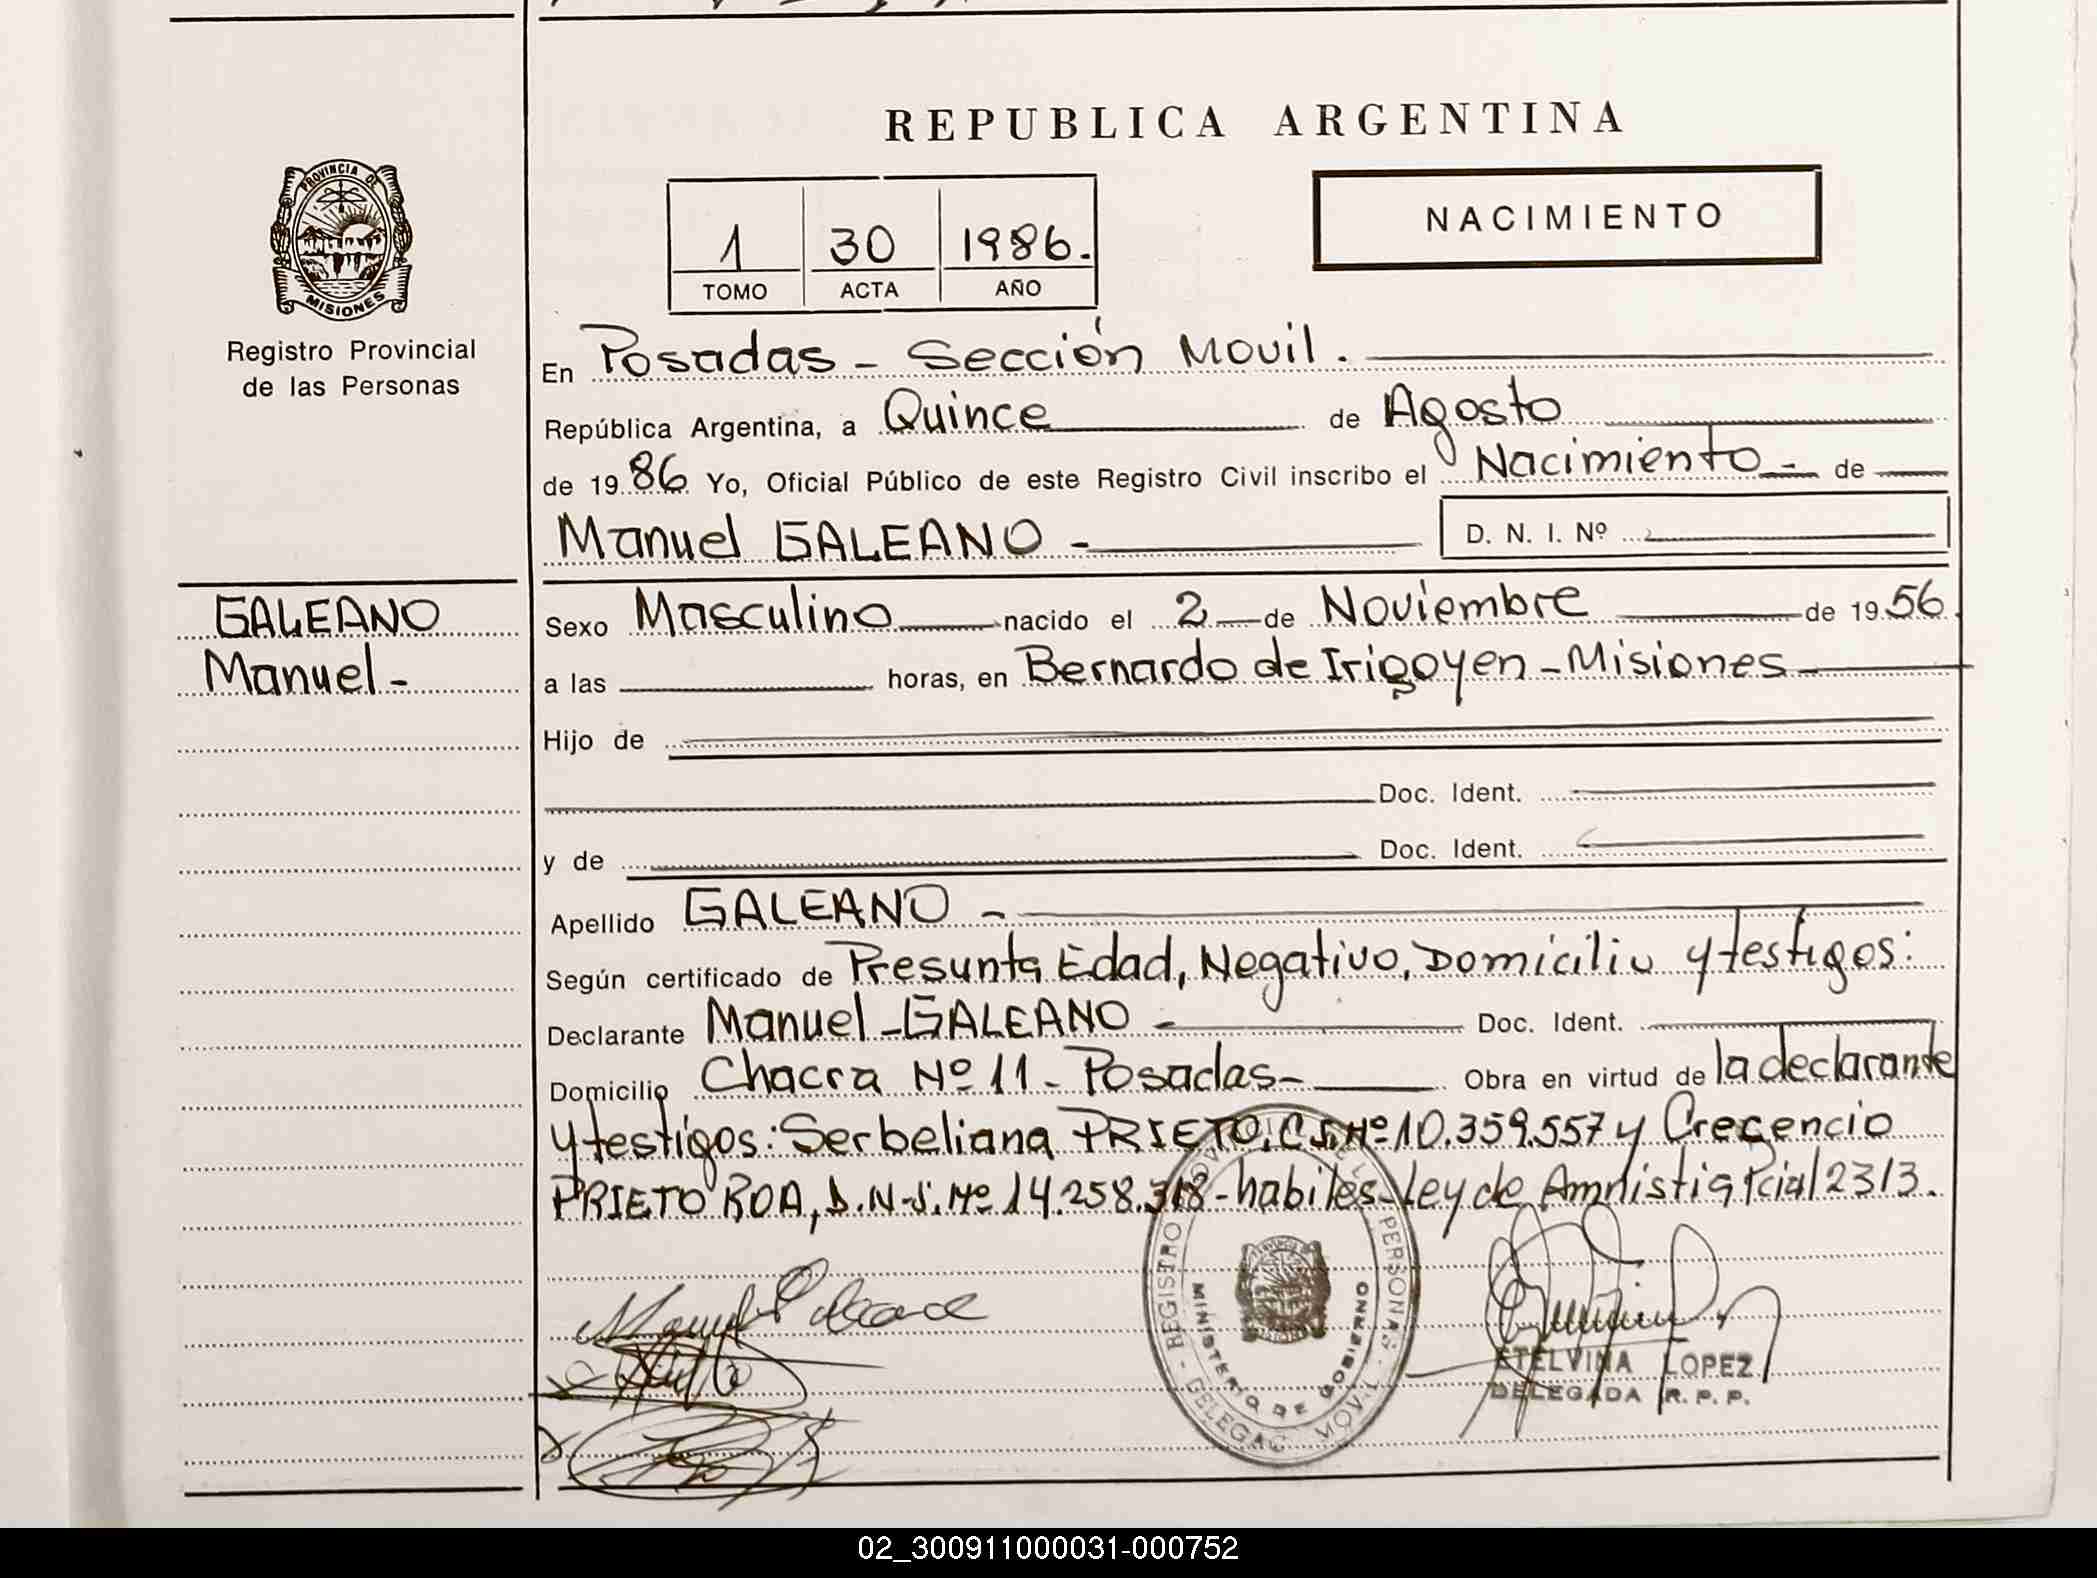 REPUBLICA ARGENTINA
PROVINCIA DE
MISIONES
Registro Provincial
de las Personas
NACIMIENTO
1 30 1986.
TOMO ACTA AÑO
En Posadas - Sección Movil.
República Argentina, a Quince de Agosto
de 1986 Yo, Oficial Público de este Registro Civil inscribo el Nacimiento - de
Manuel GALEANO - D. N. I. Nº
GALEANO
Manuel -
Sexo Masculino nacido el 2 de Noviembre de 1956.
a las horas, en Bernardo de Irigoyen - Misiones
Hijo de
Doc. Ident.
y de Doc. Ident.
Apellido GALEANO -
Según certificado de Presunta Edad, Negativo, Domicilio y testigos:
Declarante Manuel - GALEANO - Doc. Ident.
Domicilio Chacra Nº 11 - Posadas - Obra en virtud de la declarante
y testigos: Serbeliana PRIETO, Nº 10.359.557 y Crecencio
PRIETO ROA, D.N.I. Nº 14.258.318 - habiles - Ley de Amnistia Pcial 2313.
REGISTRO PERSONAS
MINISTERIO DE GOBIERNO
DELEGAC. MOVIL
ETELVINA LOPEZ
DELEGADA R. P. P.
02_300911000031-000752